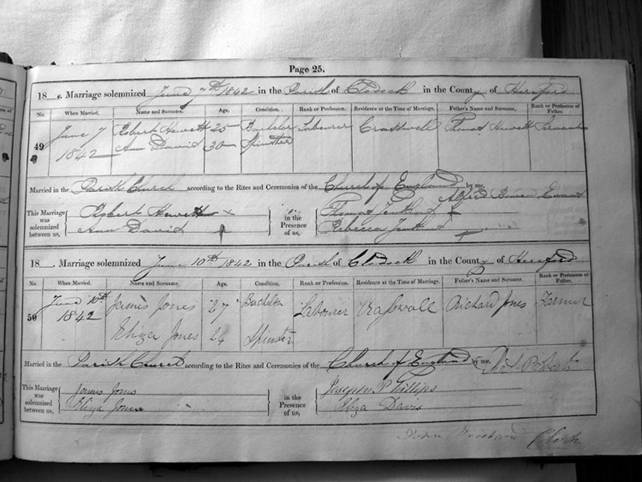 Page 25.
18 Marriage solemnized June 7th 1842 in the Parish of Clodock in the County of Hereford
No. When Married. Name and Surname. Age. Condition. Rank or Profession. Residence at the Time of Marriage. Father's Name and Surname. Rank or Profession of Father.
49 June 7 Hewett 25 Bachelor Labourer Thomas Hewett
1842 Ann David 30 Spinster
Married in the Parish Church according to the Rites and Ceremonies of the Church of England by me,
This Marriage was solemnized between us, Hewett x in the Presence of us, Thomas
Ann David Rebecca
18 Marriage solemnized June 10th 1842 in the Parish of Clodock in the County of Hereford
No. When Married. Name and Surname. Age. Condition. Rank or Profession. Residence at the Time of Marriage. Father's Name and Surname. Rank or Profession of Father.
50 June 10th James Jones 27 Bachelor Labourer Richard Jones Farmer
1842 Eliza Jones 24 Spinster
Married in the Parish Church according to the Rites and Ceremonies of the Church of England by me,
This Marriage was solemnized between us, James Jones in the Presence of us, Joseph P Phillips
Eliza Jones Eliza Davis